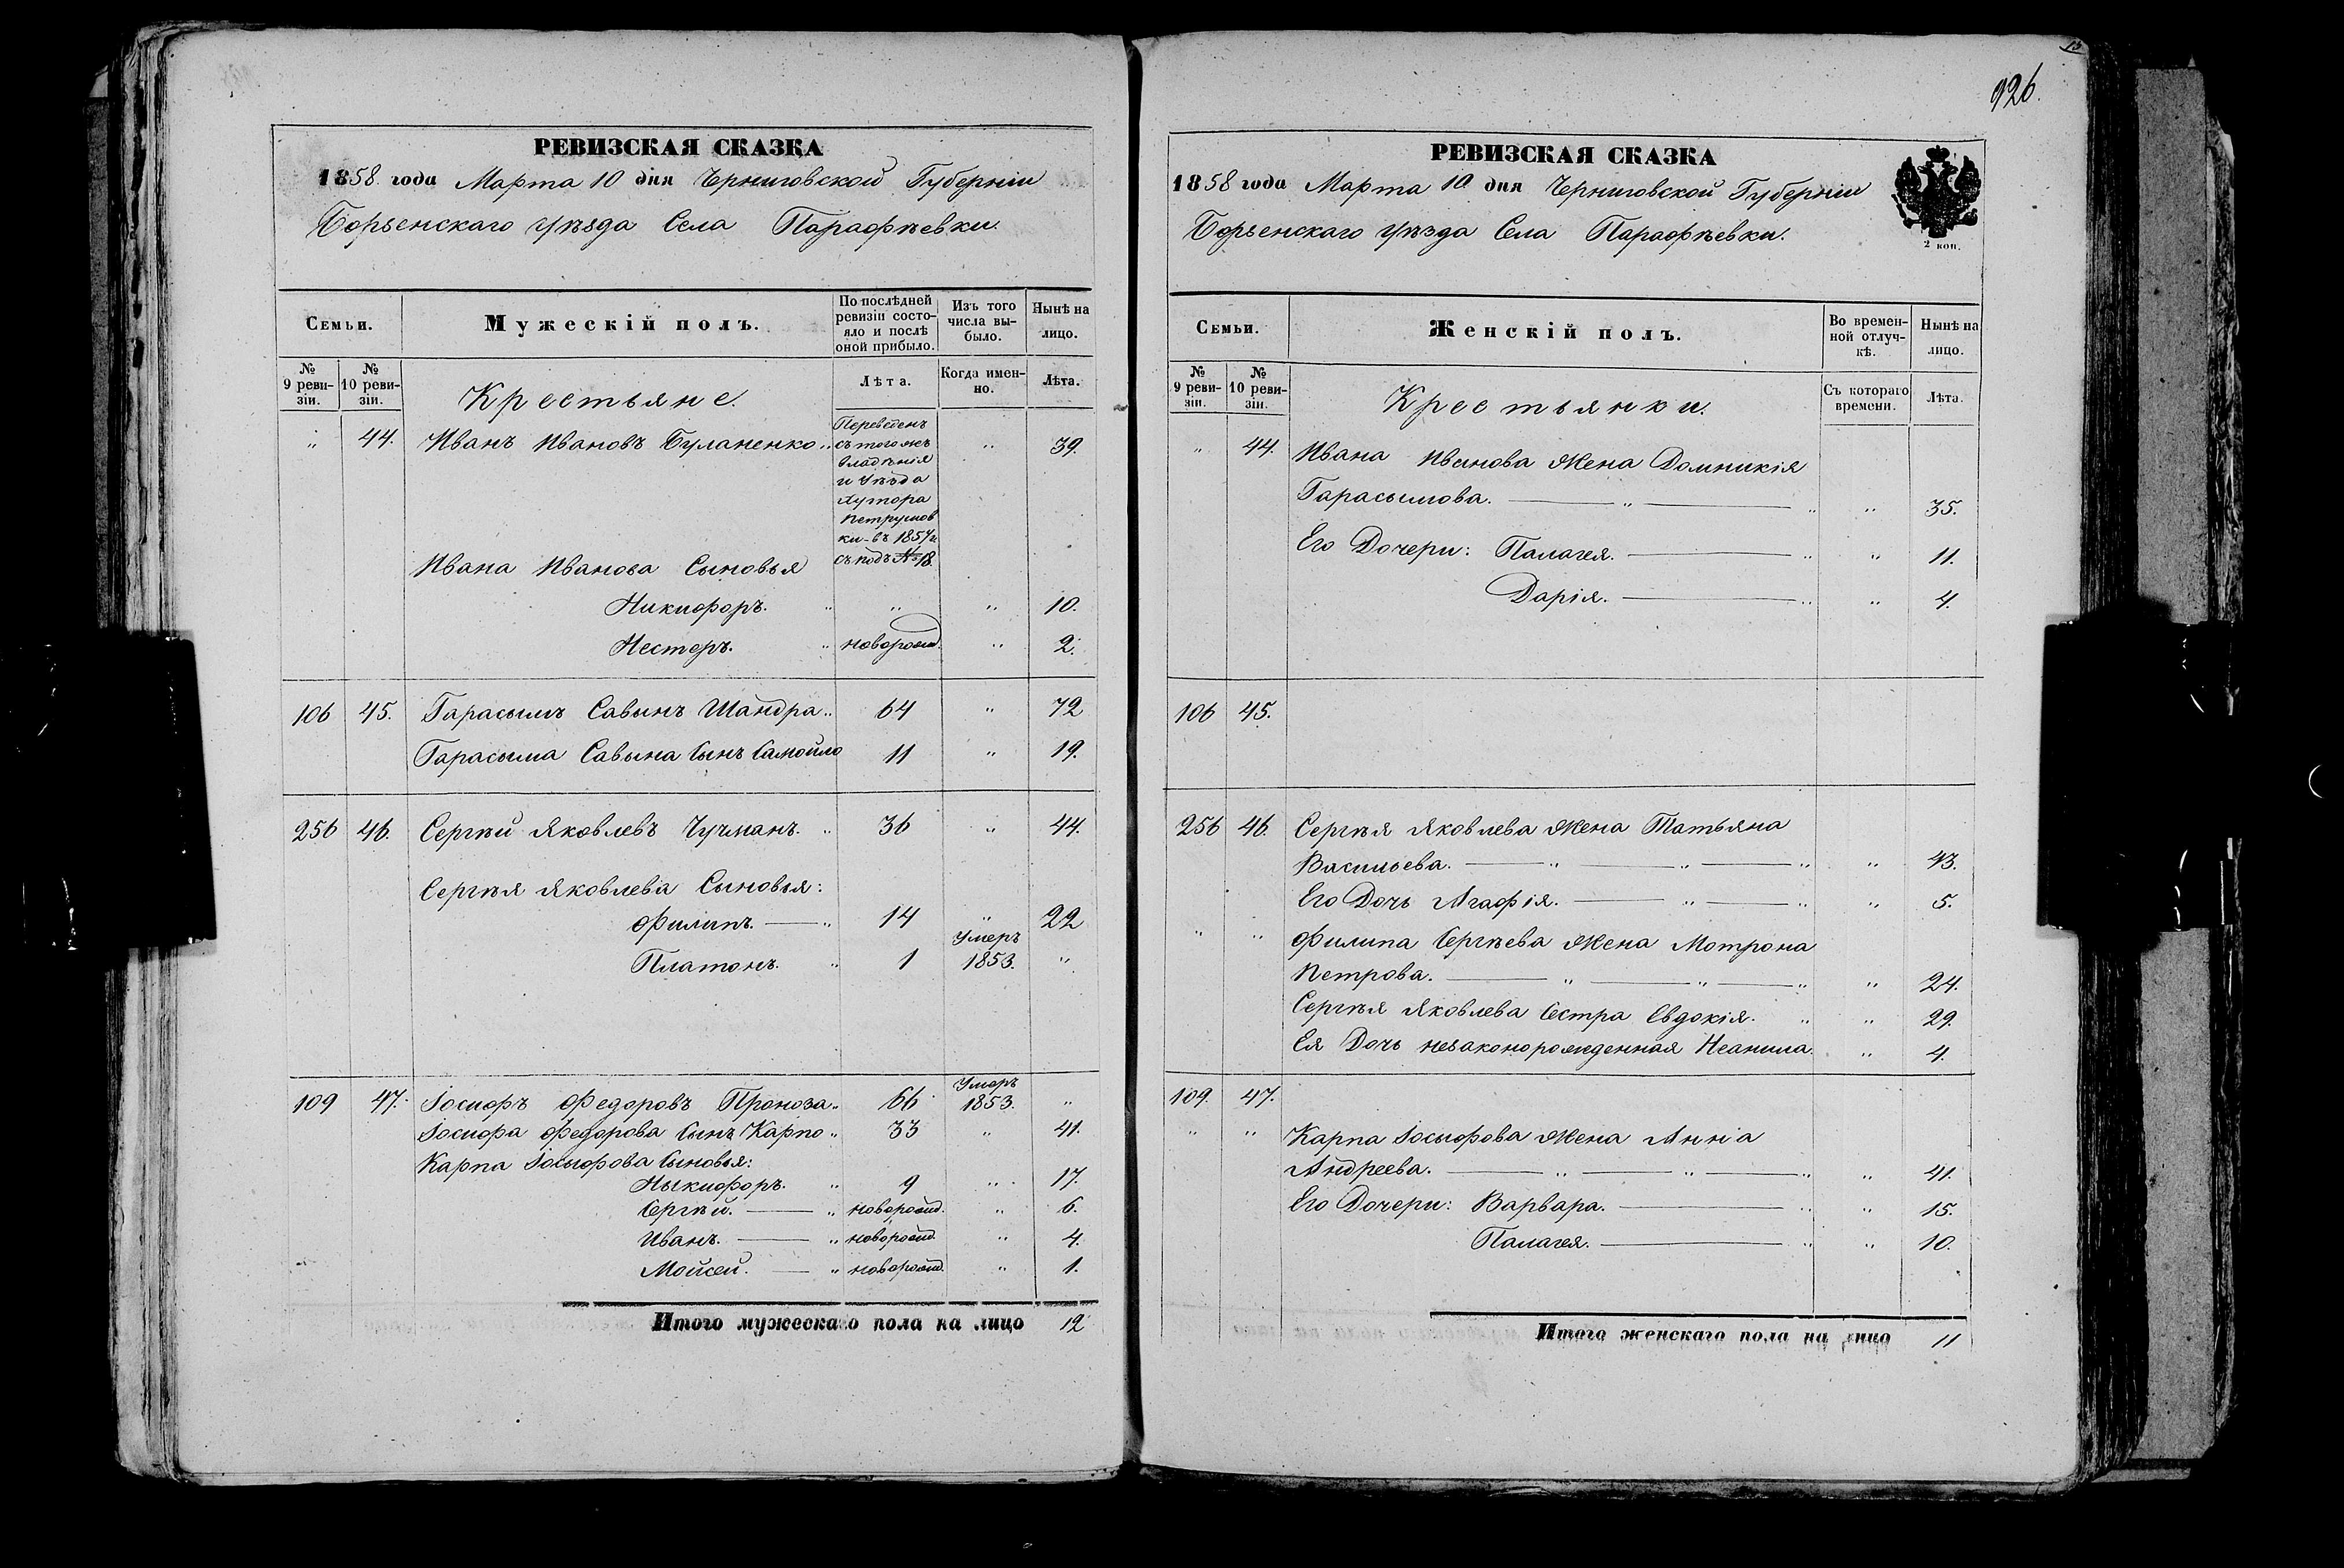 РЕВИЗСКАЯ СКАЗКА
1858 года Марта 10 дня Черниговской Губерніи
Борзенскаго Уѣзда Села Парафѣевки.
Семьи.
Мужескій полъ.
По послѣдней
ревизіи состо-
яло и послѣ
оной прибыло.
Изъ того
числа вы-
было.
Нынѣ на
лицо.
№
9 реви-
зіи.
№
10 реви-
зіи.
Крестьяне.
Лѣта.
Когда имен-
но.
Лѣта.
„ 44. Иванъ Ивановъ Буланенко „ Переведенъ „ 39.
съ того жъ
владѣнія
и Уѣзда
Хутора
Петрушов
ки въ 1857 г.
съ подъ № 18.
Ивана Иванова Сыновья
Никифоръ. „ „ „ 10.
Нестеръ. „ новорожд. „ 2.
106 45. Гарасымъ Савынъ Шандра „ 64 „ 72
Гарасыма Савына Сынъ Самойло 11 „ 19.
256 46. Сергѣй Яковлевъ Чучманъ. „ 36 „ 44.
Сергѣя Яковлева Сыновья:
Филипъ. — „ 14 „ 22
Платонъ. „ 1 Умеръ 1853. „
109 47. Іосифъ Федоровъ Проноза „ 66 Умеръ 1853. „
Іосифа Федорова Сынъ Карпо „ 33 „ 41.
Карпа Іосыфова Сыновья:
Ныкифоръ. „ 9 „ 17.
Сергѣй. — „ новорожд. „ 6.
Иванъ. — „ новорожд. „ 4.
Мойсей. — „ новорожд. „ 1.
Итого мужескаго пола на лицо 12
926.
РЕВИЗСКАЯ СКАЗКА
1858 года Марта 10 дня Черниговской Губерніи
Борзенскаго Уѣзда Села Парафѣевки.
2 коп.
Семьи.
Женскій полъ.
Во времен-
ной отлуч-
кѣ.
Нынѣ на
лицо.
№
9 реви-
зіи.
№
10 реви-
зіи.
Крестьянки.
Съ котораго
времени.
Лѣта.
„ 44. Ивана Иванова Жена Домникія
Гарасымова. — „ — „ „ 35.
Его Дочери: Палагея. — „ „ 11.
Дарія. — „ „ 4.
106 45.
256 46. Сергѣя Яковлева Жена Татьяна
Васильева. — „ — „ — „ „ 43.
Его Дочь Агафія. — „ — „ „ 5.
„ „ Филипа Сергѣева Жена Мотрона
Петрова. — „ — „ — „ „ 24.
Сергѣя Яковлева Сестра Евдокія. „ „ 29.
Ея Дочь незаконорожденная Неанила. „ 4.
109. 47.
„ „ Карпа Іосыфова Жена Анна
Андреева. — „ — „ — „ „ 41.
Его Дочери: Варвара. — „ „ 15.
Палагея. — „ „ 10.
Итого женскаго пола на лицо 11